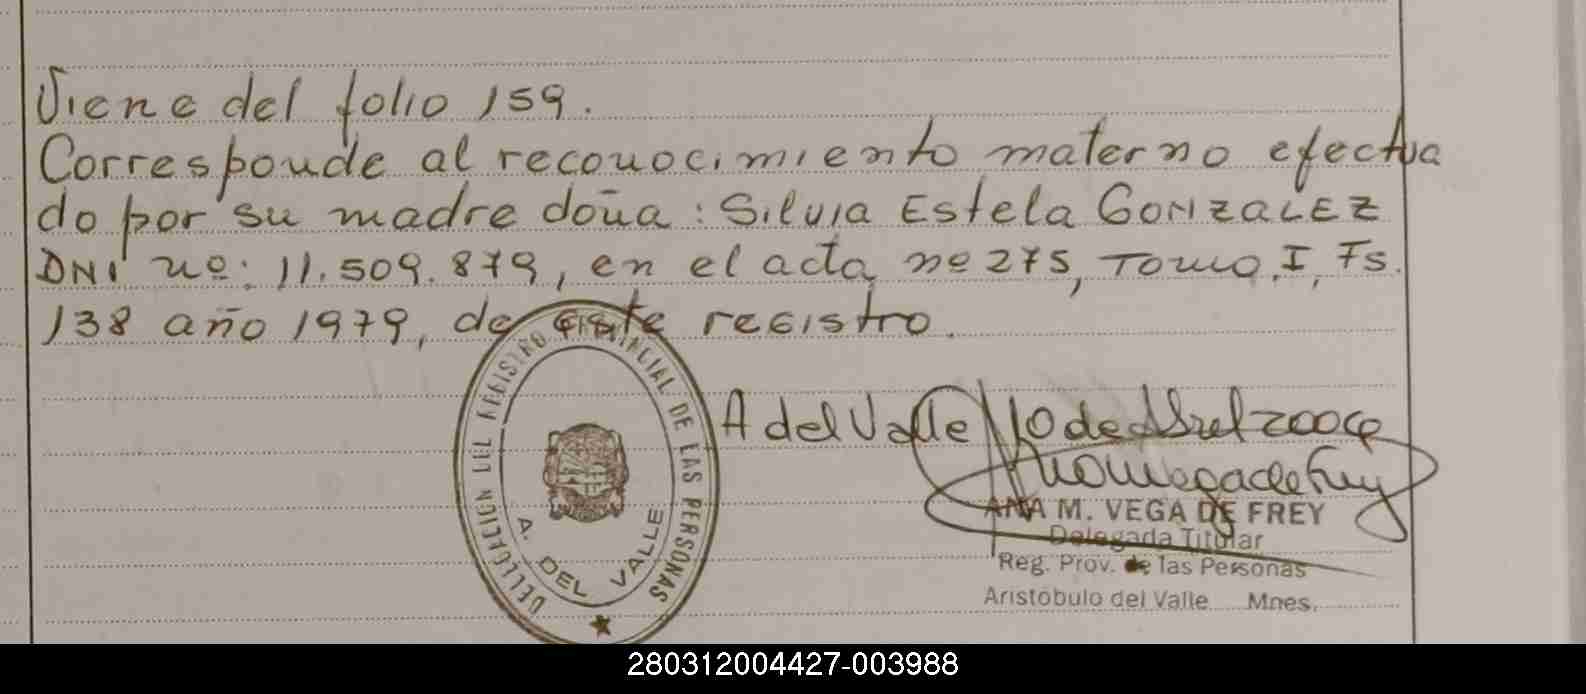 Viene del folio 159.
Corresponde al reconocimiento materno efectua
do por su madre doña: Silvia Estela GONZALEZ
DNI nº: 11.509.879, en el acta nº 275, Tomo I, Fs.
138 año 1979, de este registro.
A del Valle 10 de Abril 2004
ANA M. VEGA DE FREY
Delegada Titular
Reg. Prov. de las Personas
Aristóbulo del Valle Mnes.
DELEGACION DEL REGISTRO PROVINCIAL DE LAS PERSONAS
A. DEL VALLE
280312004427-003988